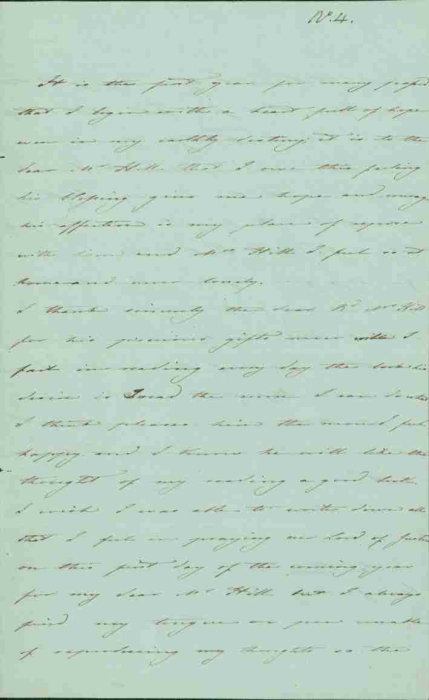 N. 4.
It is the first year for many
that I begin with a heart full of hope
even in my earthly destiny, it is to the
dear Mr Hill that I owe this feeling
his blessing gives me hope and
his affection is my place of repose
with him and Mrs Hill I feel at
home and never lonely.
I thank sincerely the dear Rd Mr Hill
for his precious gifts never will I
fail in reading every day the
desire is I read the more I can
I think pleases him the more I feel
happy and I know he will like the
thought of my reading a good book.
I wish I was able to write down all
that I feel in praying our Lord
on this first day of the coming year
for my dear Mr Hill but I always
find my tongue or pen unable
of reproducing my thoughts so the